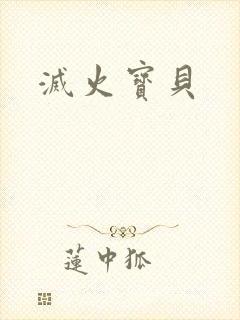 滅火寶貝
蓮中狐